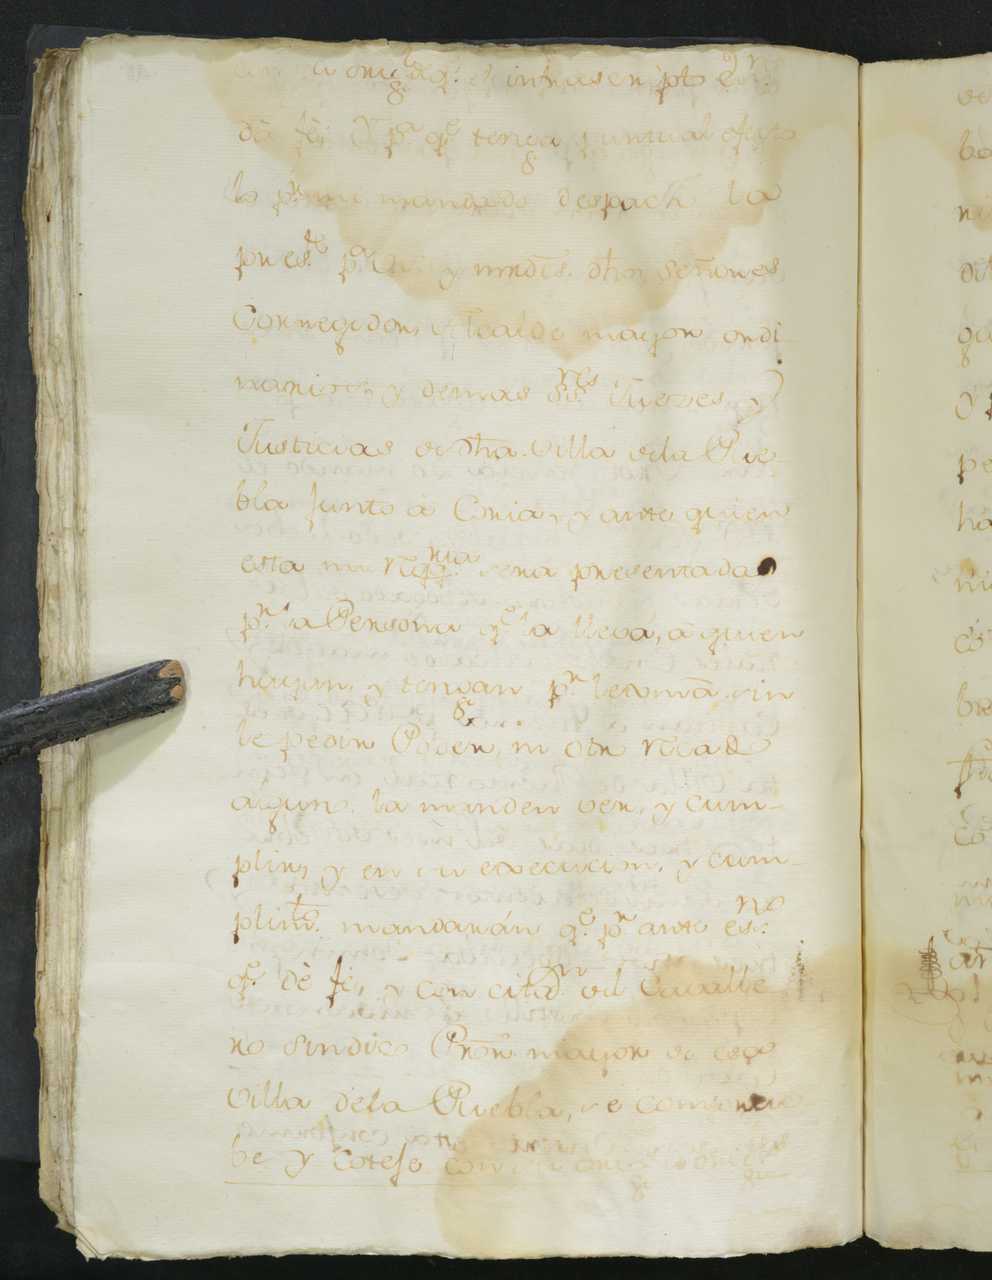 origl. dq. el infraescripto Esn.
da fe; Y pa. qe. tenga puntual efecto
lo pr. mi mandado despacho la
preste. pa. Vms. y mrds. dhos Señores
Corregidor, Alcalde mayor ordi
narios, y demas Sres. Juezes, y
Justicias de dha. villa dela Pue
bla junto à Coria, y ante quien
esta mi Requisria. sera presentada
pr. la Persona qe. la lleva, à quien
hayan, y tengan pr. lexitima sin
le pedir Poder, ni otro recado
alguno, la manden ver, y cum-
plir, y en su execucion, y cum-
plimto. mandarán qe. pr. ante esno.
qe. dè fe, y con citon. del Cavalle
ro Sindico Pror. mayor de esa
villa dela Puebla, se comprue
be y coteje con su original